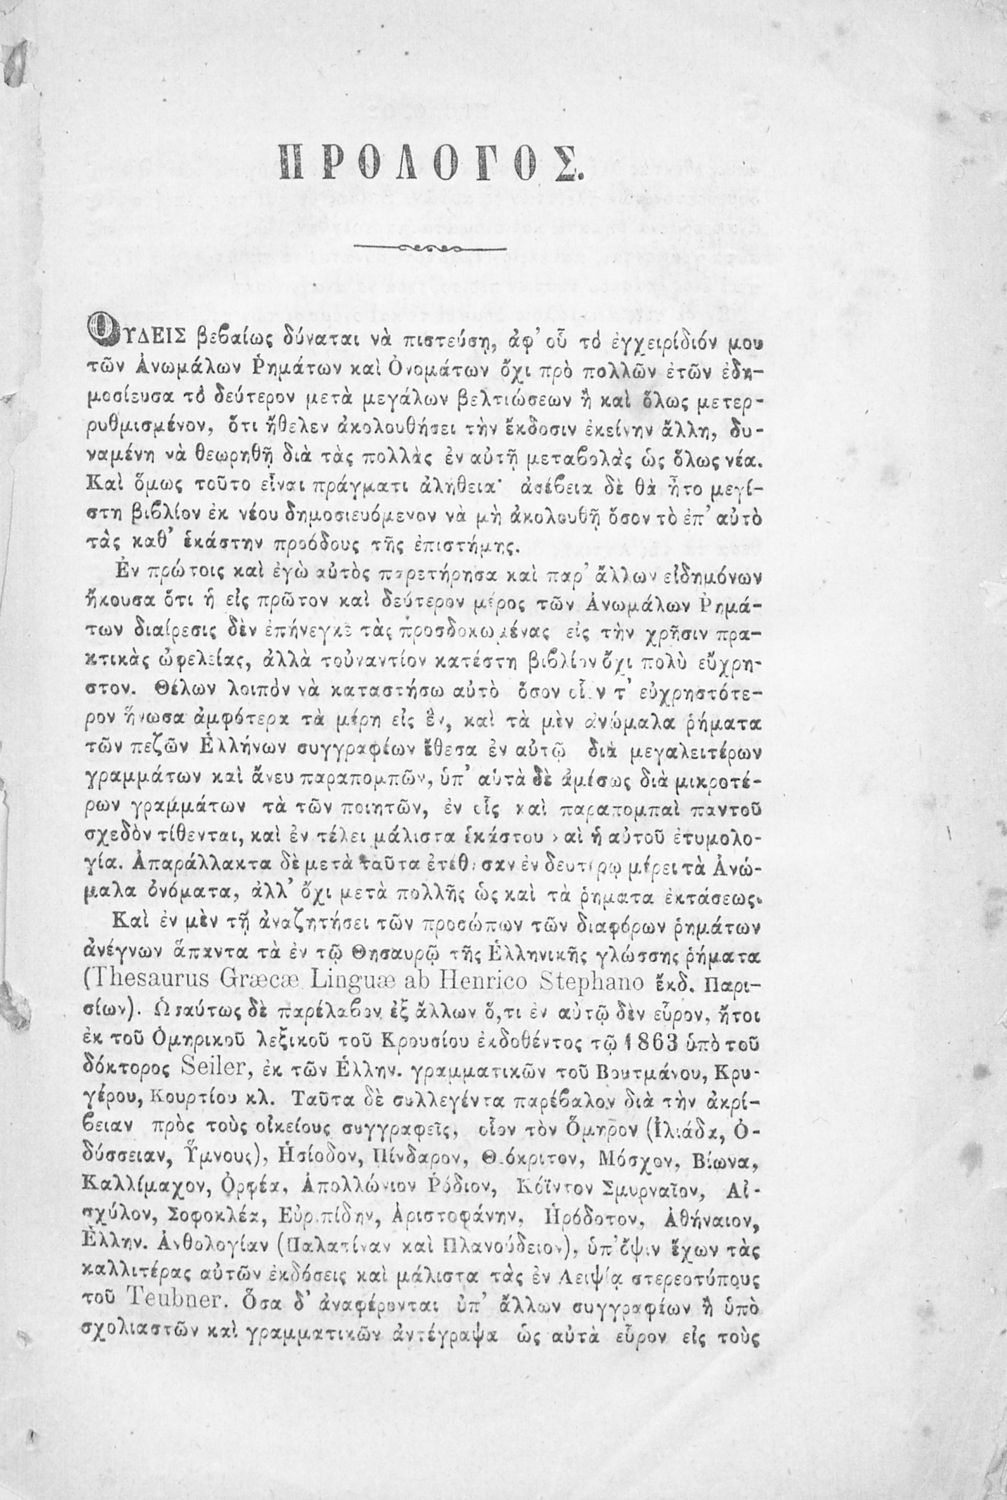 ΠΡΟΛΟΓΟΣ.
ΟΥΔΕΙΣ βεβαίως δύναται νὰ πιστεύσῃ, ἀφ' οὗ τὸ ἐγχειρίδιόν μου
τῶν Ἀνωμάλων Ῥημάτων καὶ Ὀνομάτων ὄχι πρὸ πολλῶν ἐτῶν ἐδη-
μοσίευσα τὸ δεύτερον μετὰ μεγάλων βελτιώσεων ἢ καὶ ὅλως μετερ-
ρυθμισμένον, ὅτι ἤθελεν ἀκολουθήσει τὴν ἔκδοσιν ἐκείνην ἄλλη, δυ-
ναμένη νὰ θεωρηθῇ διὰ τὰς πολλὰς ἐν αὐτῇ μεταβολὰς ὡς ὅλως νέα.
Καὶ ὅμως τοῦτο εἶναι πράγματι ἀλήθεια· ἀσέβεια δὲ θὰ ἦτο μεγί-
στη βιβλίον ἐκ νέου δημοσιευόμενον νὰ μὴ ἀκολουθῇ ὅσον τὸ ἐπ' αὐτὸ
τὰς καθ' ἑκάστην προόδους τῆς ἐπιστήμης.
Ἐν πρώτοις καὶ ἐγὼ αὐτὸς παρετήρησα καὶ παρ' ἄλλων εἰδημόνων
ἤκουσα ὅτι ἡ εἰς πρῶτον καὶ δεύτερον μέρος τῶν Ἀνωμάλων Ῥημά-
των διαίρεσις δὲν ἐπήνεγκε τὰς προσδοκωμένας εἰς τὴν χρῆσιν πρα-
κτικὰς ὠφελείας, ἀλλὰ τοὐναντίον κατέστη βιβλίον ὄχι πολὺ εὔχρη-
στον. Θέλων λοιπὸν νὰ καταστήσω αὐτὸ ὅσον οἷόν τ' εὐχρηστότε-
ρον ἥνωσα ἀμφότερα τὰ μέρη εἰς ἓν, καὶ τὰ μὲν ἀνώμαλα ῥήματα
τῶν πεζῶν Ἑλλήνων συγγραφέων ἔθεσα ἐν αὐτῷ διὰ μεγαλειτέρων
γραμμάτων καὶ ἄνευ παραπομπῶν, ὑπ' αὐτὰ δὲ ἀμέσως διὰ μικροτέ-
ρων γραμμάτων τὰ τῶν ποιητῶν, ἐν οἷς καὶ παραπομπαὶ παντοῦ
σχεδὸν τίθενται, καὶ ἐν τέλει μάλιστα ἑκάστου καὶ ἡ αὐτοῦ ἐτυμολο-
γία. Ἀπαράλλακτα δὲ μετὰ ταῦτα ἐτέθησαν ἐν δευτέρῳ μέρει τὰ Ἀνώ-
μαλα ὀνόματα, ἀλλ' ὄχι μετὰ πολλῆς ὡς καὶ τὰ ῥήματα ἐκτάσεως.
Καὶ ἐν μὲν τῇ ἀναζητήσει τῶν προσώπων τῶν διαφόρων ῥημάτων
ἀνέγνων ἅπαντα τὰ ἐν τῷ Θησαυρῷ τῆς Ἑλληνικῆς γλώσσης ῥήματα
(Thesaurus Græcæ Linguæ ab Henrico Stephano ἔκδ. Παρι-
σίων). Ὡσαύτως δὲ παρέλαβον ἐξ ἄλλων ὅ,τι ἐν αὐτῷ δὲν εὗρον, ἤτοι
ἐκ τοῦ Ὁμηρικοῦ λεξικοῦ τοῦ Κρουσίου ἐκδοθέντος τῷ 1863 ὑπὸ τοῦ
δόκτορος Seiler, ἐκ τῶν Ἑλλην. γραμματικῶν τοῦ Βουτμάνου, Κρυ-
γέρου, Κουρτίου κλ. Ταῦτα δὲ συλλεγέντα παρέβαλον διὰ τὴν ἀκρί-
βειαν πρὸς τοὺς οἰκείους συγγραφεῖς, οἷον τὸν Ὅμηρον (Ἰλιάδα, Ὀ-
δύσσειαν, Ὕμνους), Ἡσίοδον, Πίνδαρον, Θεόκριτον, Μόσχον, Βίωνα,
Καλλίμαχον, Ὀρφέα, Ἀπολλώνιον Ῥόδιον, Κόϊντον Σμυρναῖον, Αἰ-
σχύλον, Σοφοκλέα, Εὐριπίδην, Ἀριστοφάνην, Ἡρόδοτον, Ἀθήναιον,
Ἑλλην. Ἀνθολογίαν (Παλατίναν καὶ Πλανούδειον), ὑπ' ὄψιν ἔχων τὰς
καλλιτέρας αὐτῶν ἐκδόσεις καὶ μάλιστα τὰς ἐν Λειψίᾳ στερεοτύπους
τοῦ Teubner. Ὅσα δ' ἀναφέρονται ὑπ' ἄλλων συγγραφέων ἢ ὑπὸ
σχολιαστῶν καὶ γραμματικῶν ἀντέγραψα ὡς αὐτὰ εὗρον εἰς τοὺς